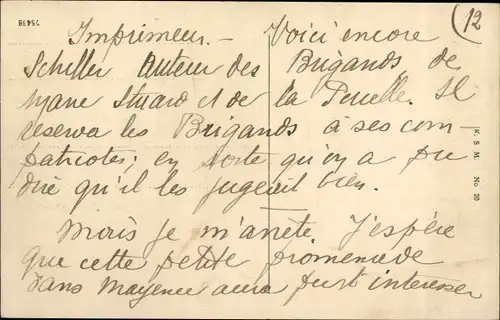 75438
12
Imprimeur. – Voici encore
Schiller Auteur des Brigands de
Marie Stuard et de la Pucelle. Il
reserva les Brigands à ses com
patriotes; en sorte qu'on a pu
dire qu'il les jugeait bien.
Mais je m'arrête J'espère
que cette petite promenade
dans Mayence aura put interesser
K. S. M. No 20